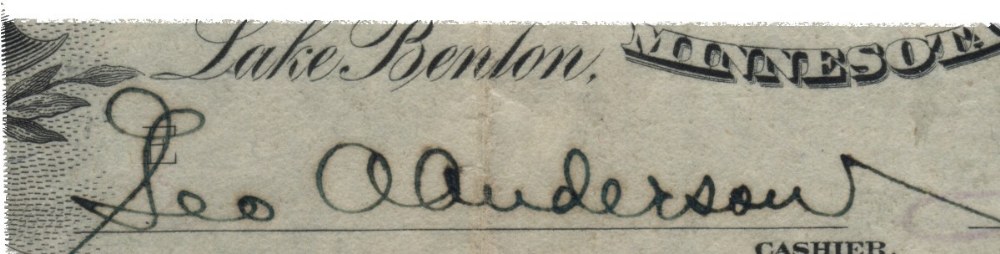 Lake Benton, MINNESOTA
E
Geo A Anderson
CASHIER.